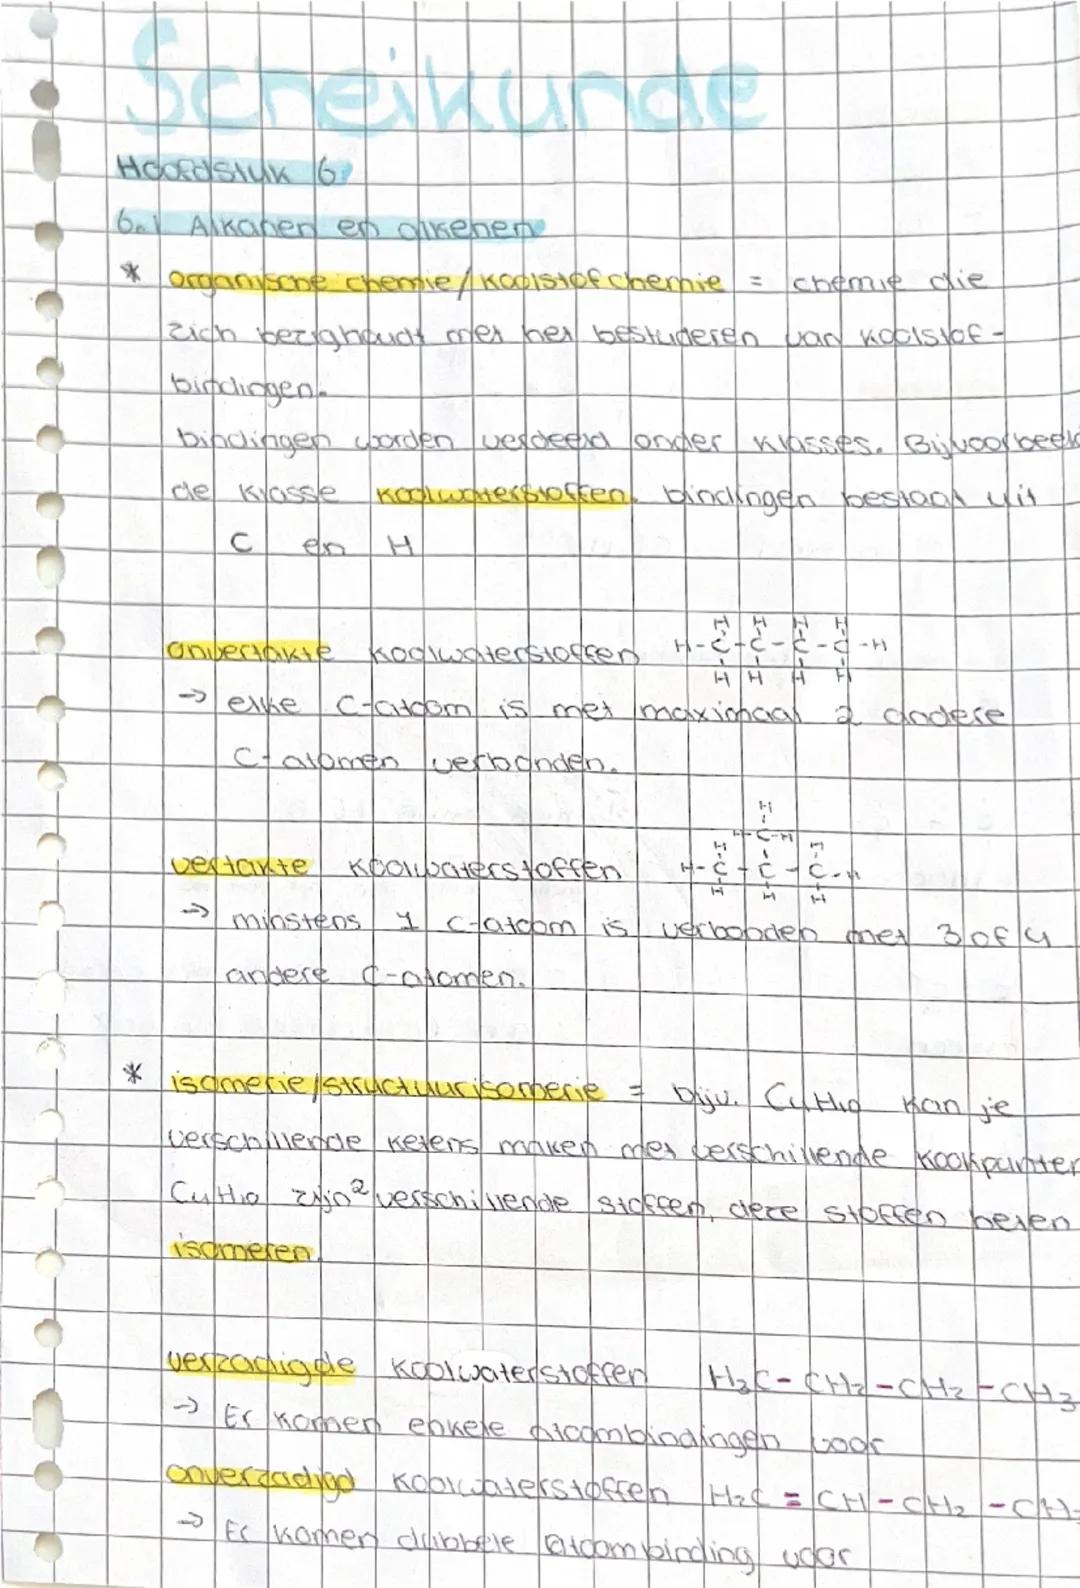 Scheikunde
Hoofdstuk 6
6.1 Alkanen en alkenen
* organische chemie/koolstofchemie = chemie die
zich bezighoudt met het bestuderen van koolstof-
bindingen.
bindingen worden verdeeld onder klasses. Bijvoorbeeld
de klasse koolwaterstoffen. bindingen bestaat uit
C en H
H H H H
onvertakte koolwaterstoffen H-C-C-C-C-H
H H H H
→ elke C-atoom is met maximaal 2 andere
C-atomen verbonden.
H
H-C-H
H H
vertakte koolwaterstoffen H-C-C-C-H
H H H
→ minstens 1 C-atoom is verbonden met 3 of 4
andere C-atomen.
* isomerie/structuurisomerie = bijv. C4H10 kan je
verschillende ketens maken met verschillende kookpunten
C4H10 zijn 2 verschillende stoffen, deze stoffen heten
isomeren.
verzadigde koolwaterstoffen H3C-CH2-CH2-CH3
→ Er komen enkele atoombindingen voor
onverzadigd koolwaterstoffen H2C=CH-CH2-CH3
→ Er komen dubbele atoombinding voor